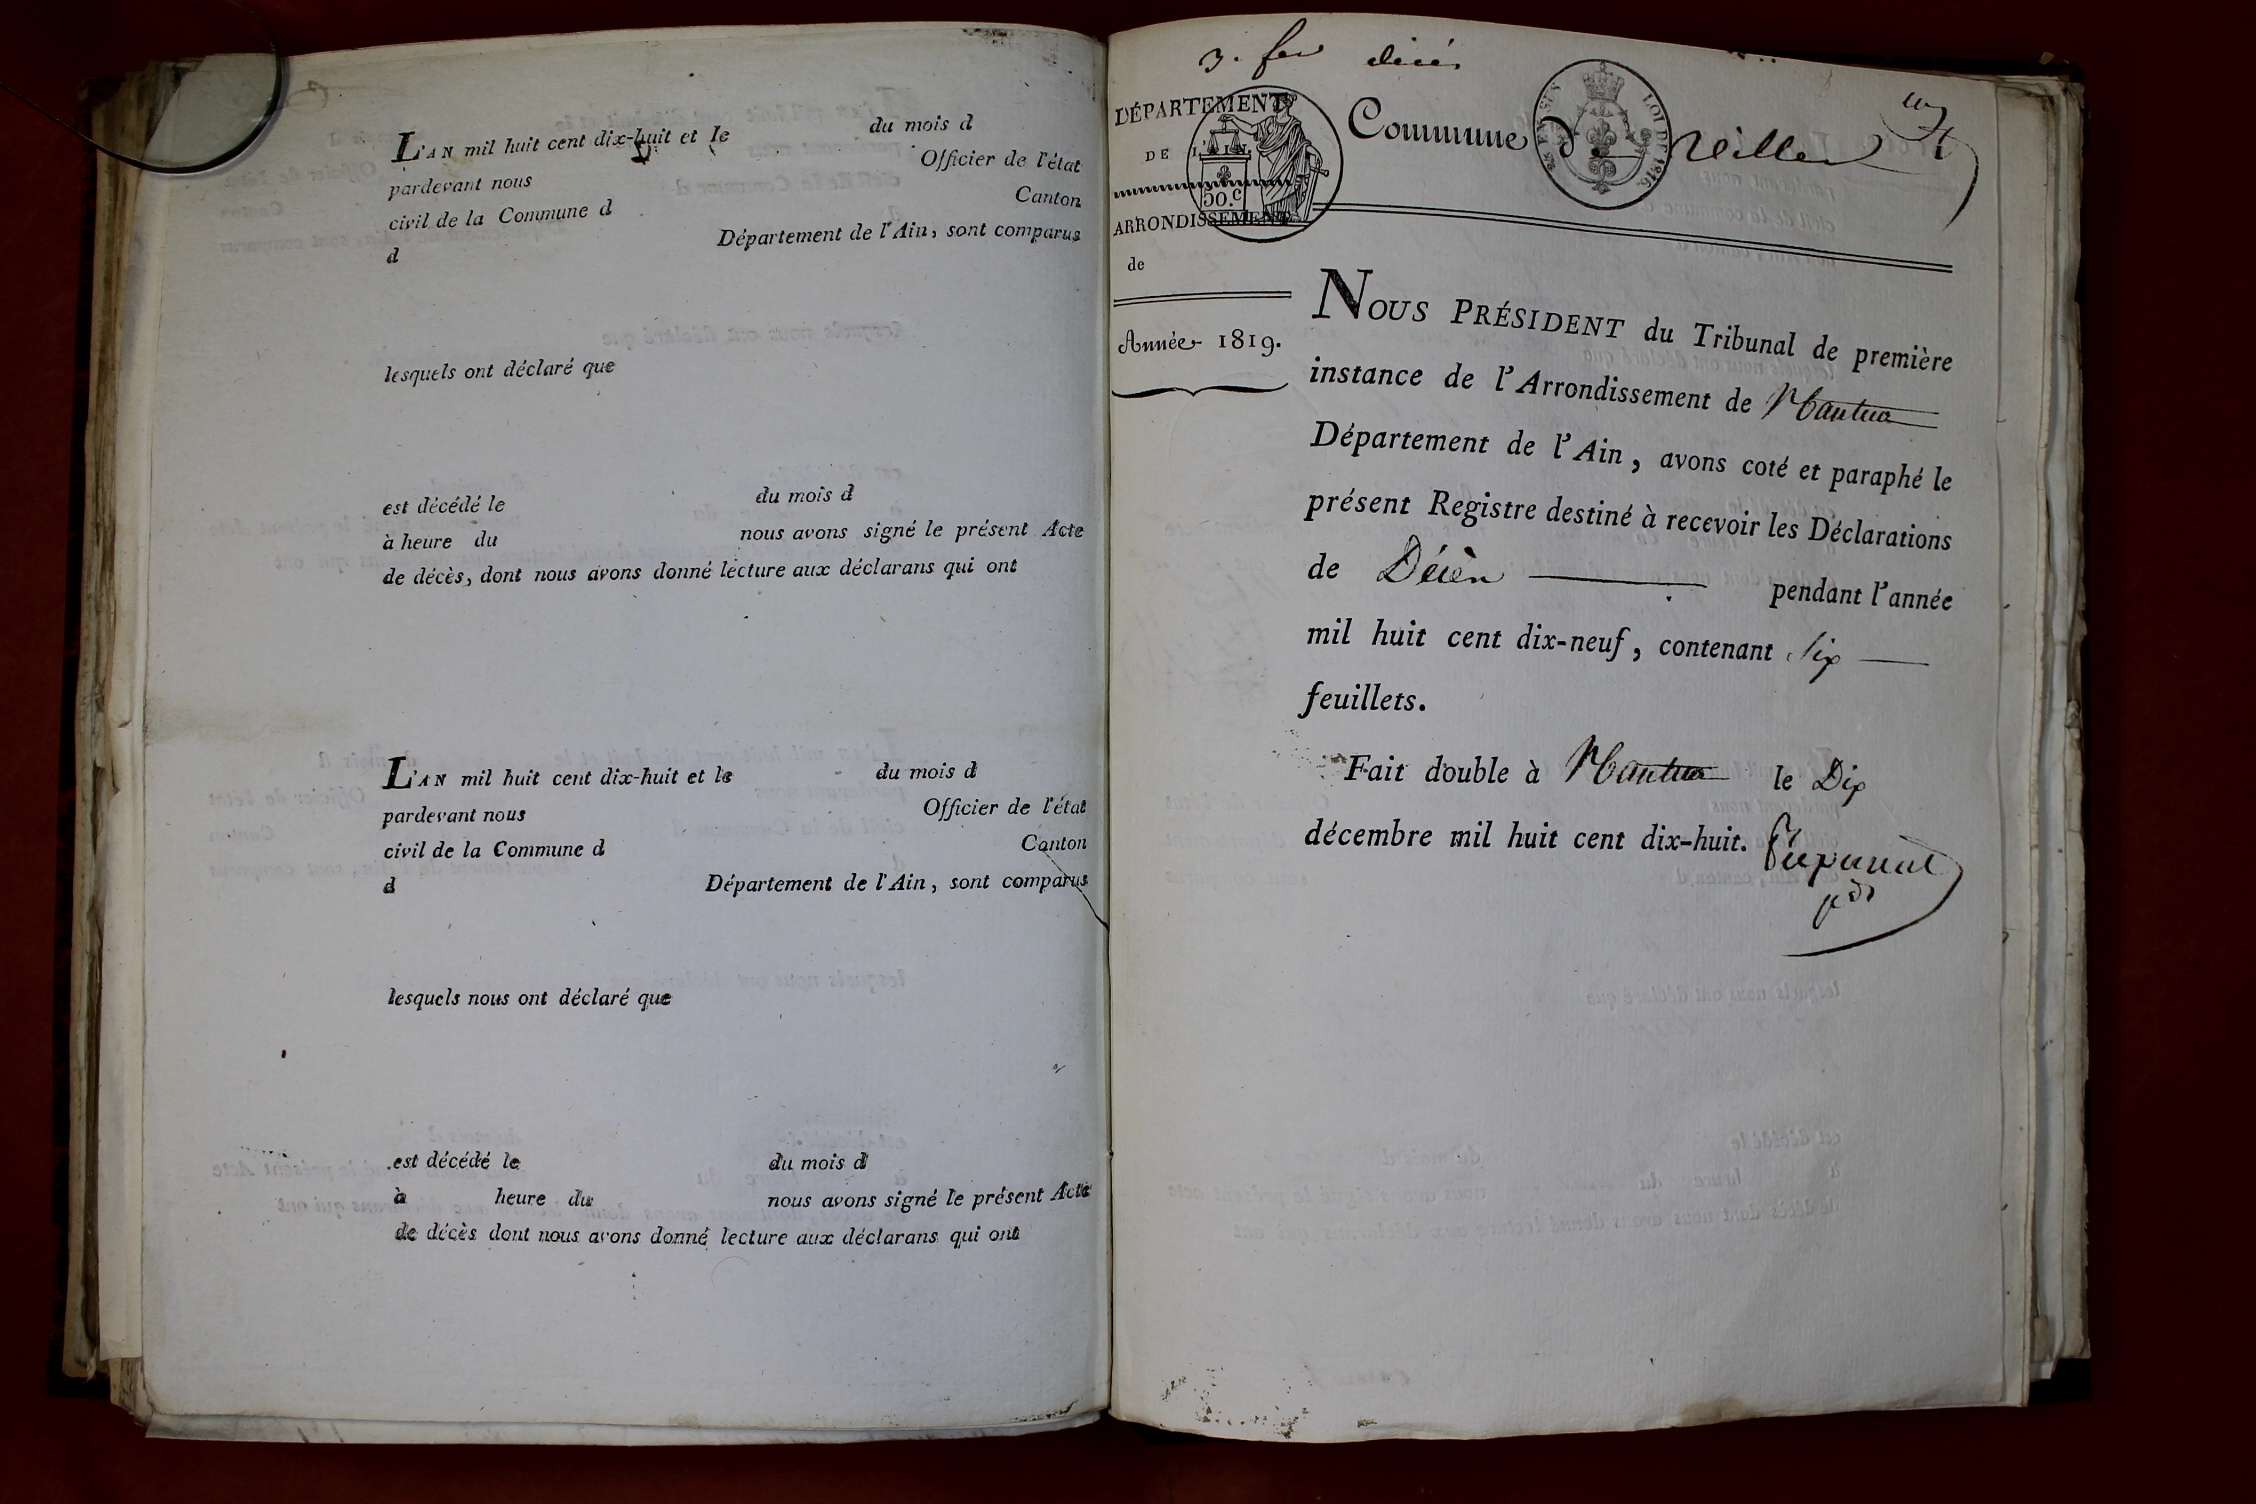 L'AN mil huit cent dix-huit et le du mois d
pardevant nous Officier de l'état
civil de la Commune d Canton
d Département de l'Ain, sont comparus
lesquels ont déclaré que
est décédé le du mois d
à heure du nous avons signé le présent Acte
de décès, dont nous avons donné lecture aux déclarans qui ont
L'AN mil huit cent dix-huit et le du mois d
pardevant nous Officier de l'état
civil de la Commune d Canton
d Département de l'Ain, sont comparus
lesquels nous ont déclaré que
est décédé le du mois d
à heure du nous avons signé le présent Acte
de décès dont nous avons donné lecture aux déclarans qui ont
3.
DÉPARTEMENT
DE L'AIN.
50.c
ARRONDISSEMENT
de
Année 1819.
Commune de
LOI DE 1816.
NOUS PRÉSIDENT du Tribunal de première
instance de l'Arrondissement de Nantua
Département de l'Ain, avons coté et paraphé le
présent Registre destiné à recevoir les Déclarations
de Décès pendant l'année
mil huit cent dix-neuf, contenant six
feuillets.
Fait double à Nantua le Dix
décembre mil huit cent dix-huit.